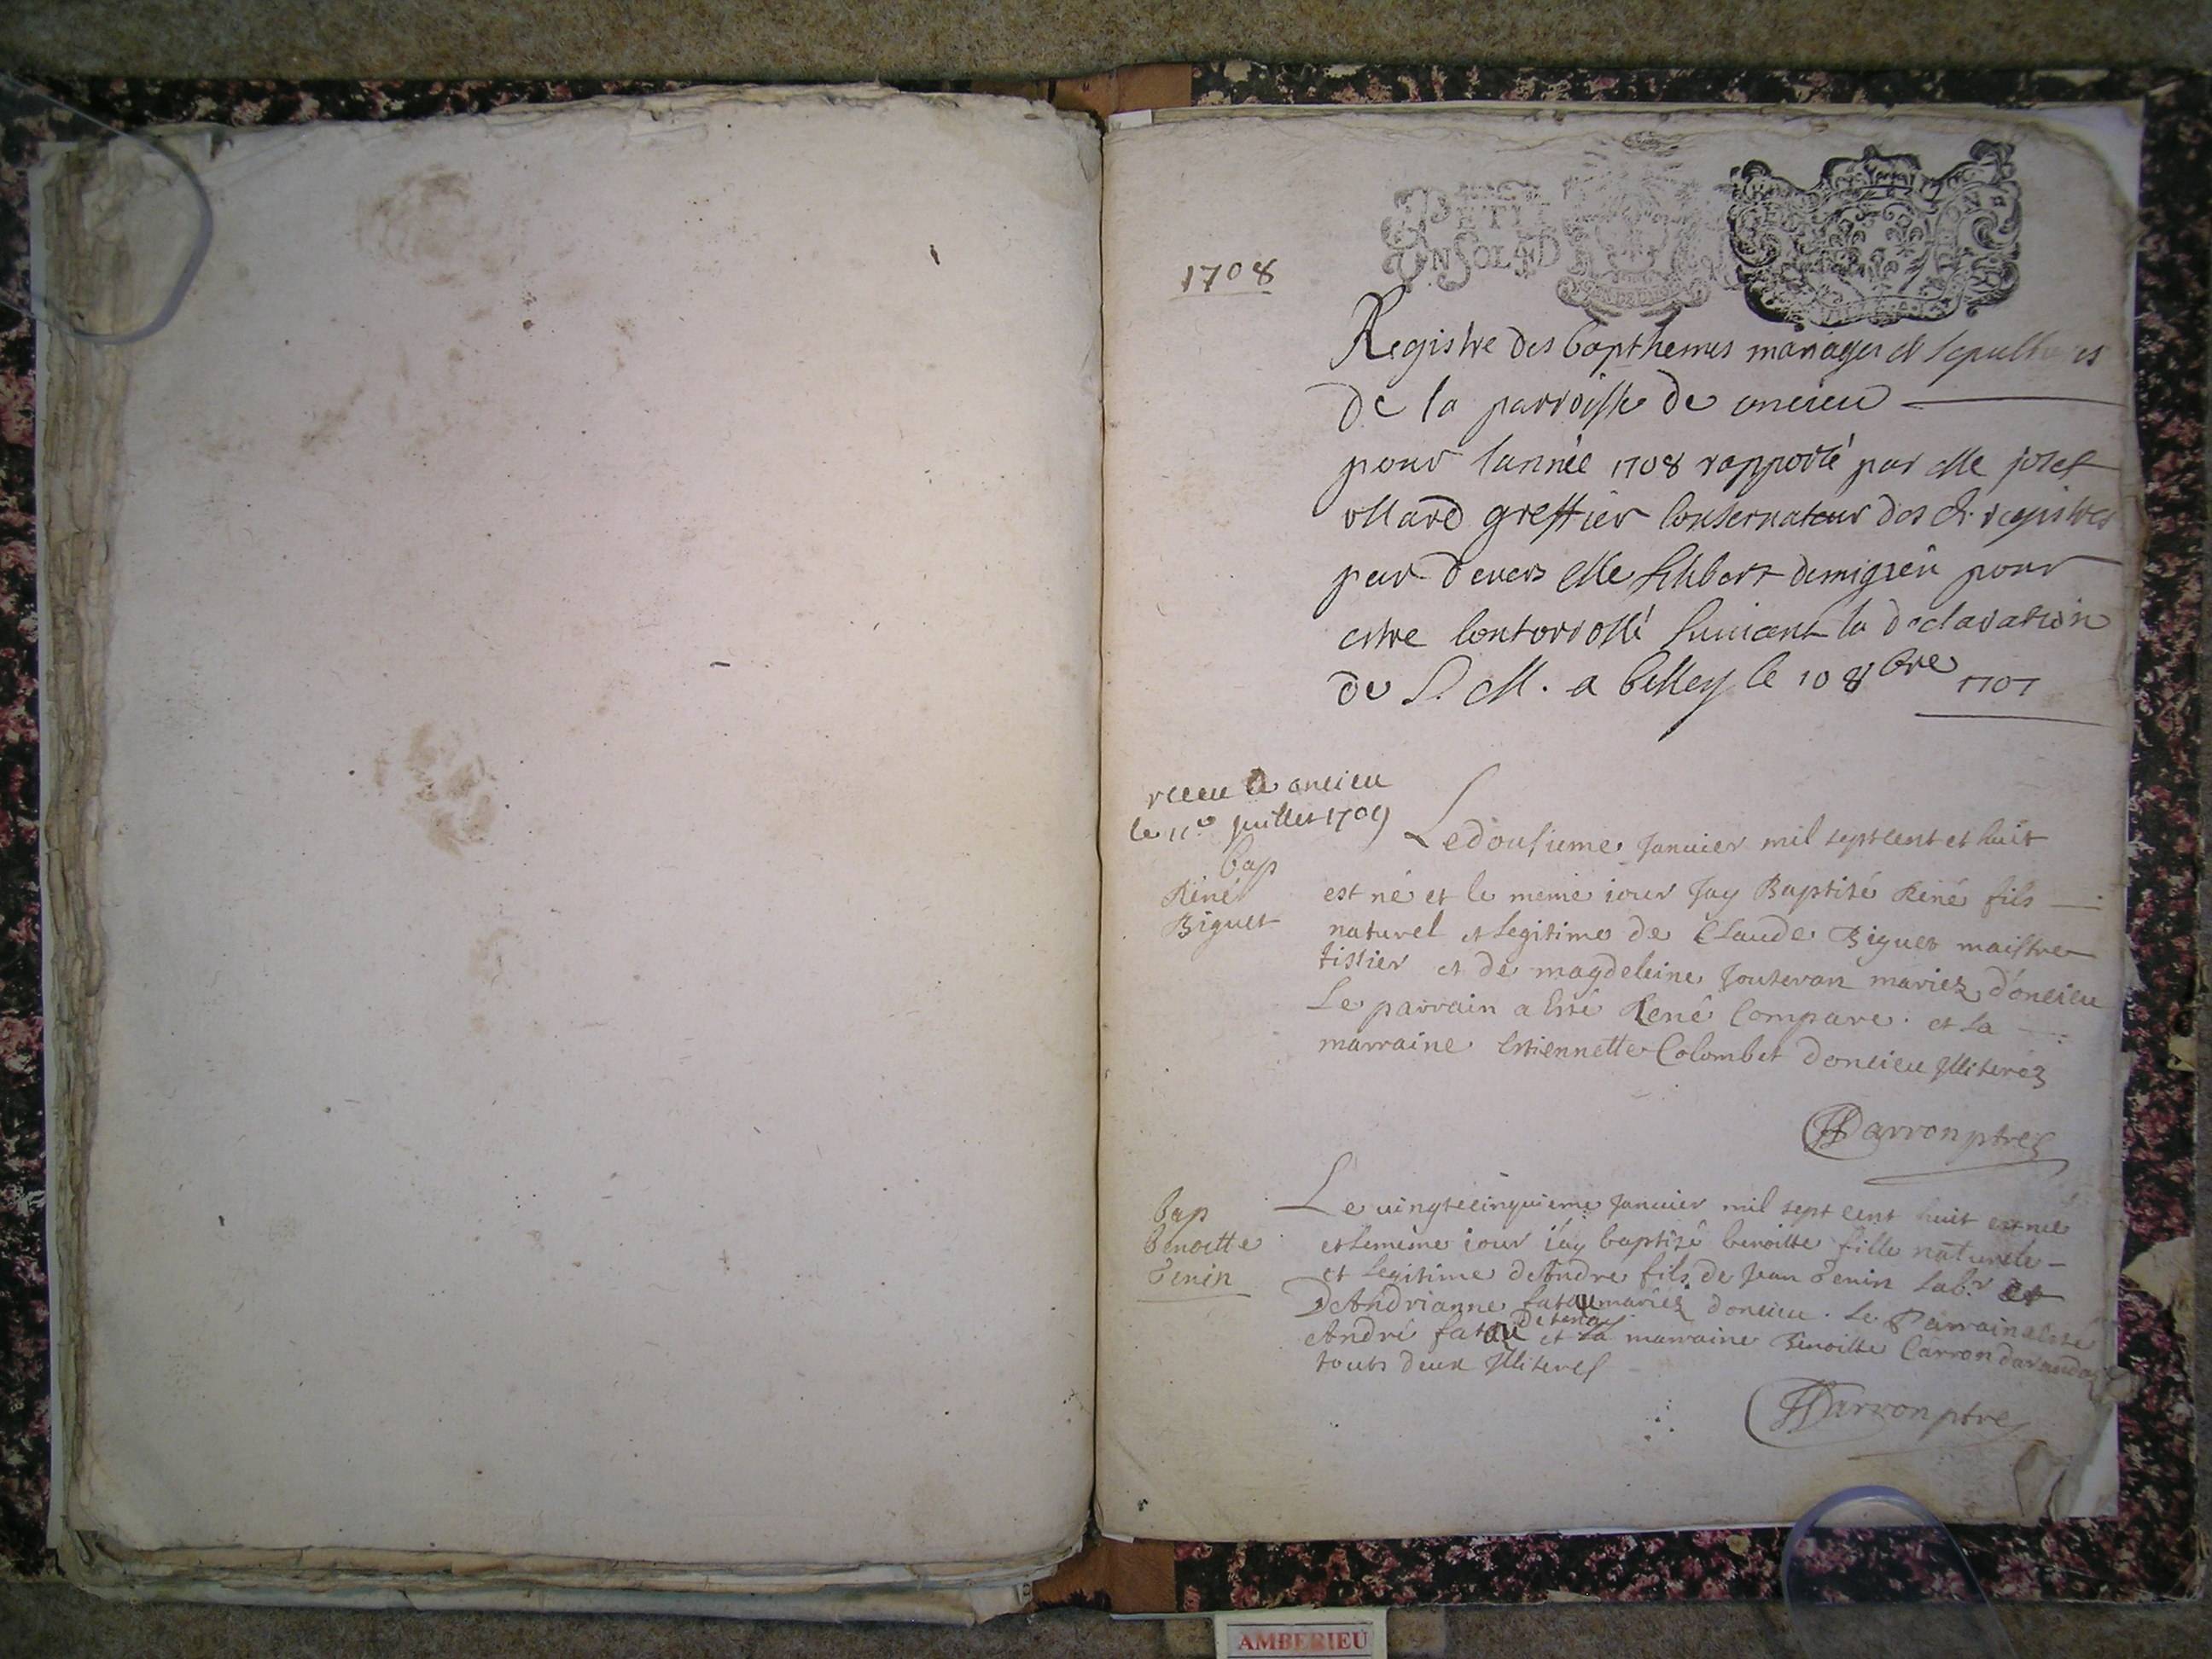 1708
PETIT
UN SOL
Registre des bapthemes mariages et sepultures
de la parroisse de oncieu
pour lannée 1708 rapporté par Me josef
greffier Consernateur des d. registres
par devers Me filibert demigieu pour
estre Contorrollé suiuant la declaration
de S. M. a belley le 10 8bre 1707
receu a oncieu
le 11e juillet 1709
bap
Réné
Biguet
Le dousieme Januier mil sept cent et huit
est né et le meme iour Jay Baptisé René fils
naturel et legitime de Claude Biguet maistre
tissier et de magdeleine Jouteran mariez d'oncieu
Le parrain a esté René Compare et la
marraine Estiennette Colombet doncieu Illiteréz
Carron ptre
bap
benoitte
Tenin
Le uingtecinquieme Januier mil sept cent huit est née
et le meme iour i'ay baptisé benoitte fille naturele
et legitime de Andre fils de Jean Tenin lab.r et
De Andrianne fatou mariez doncieu. Le Parrain a esté
André fatou et la marraine Benoitte Carron
touts deux Illiteres
Carron ptre
AMBERIEU